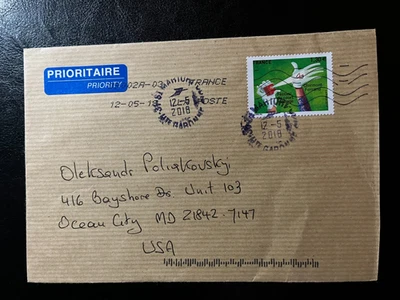 PRIORITAIRE
PRIORITY
02A-03 FRANCE
12-05-18 POSTE
12-5
2018
12-5
2018
Oleksandr Poliakovskyi
416 Bayshore Dr. Unit 103
Ocean City MD 21842-7147
USA